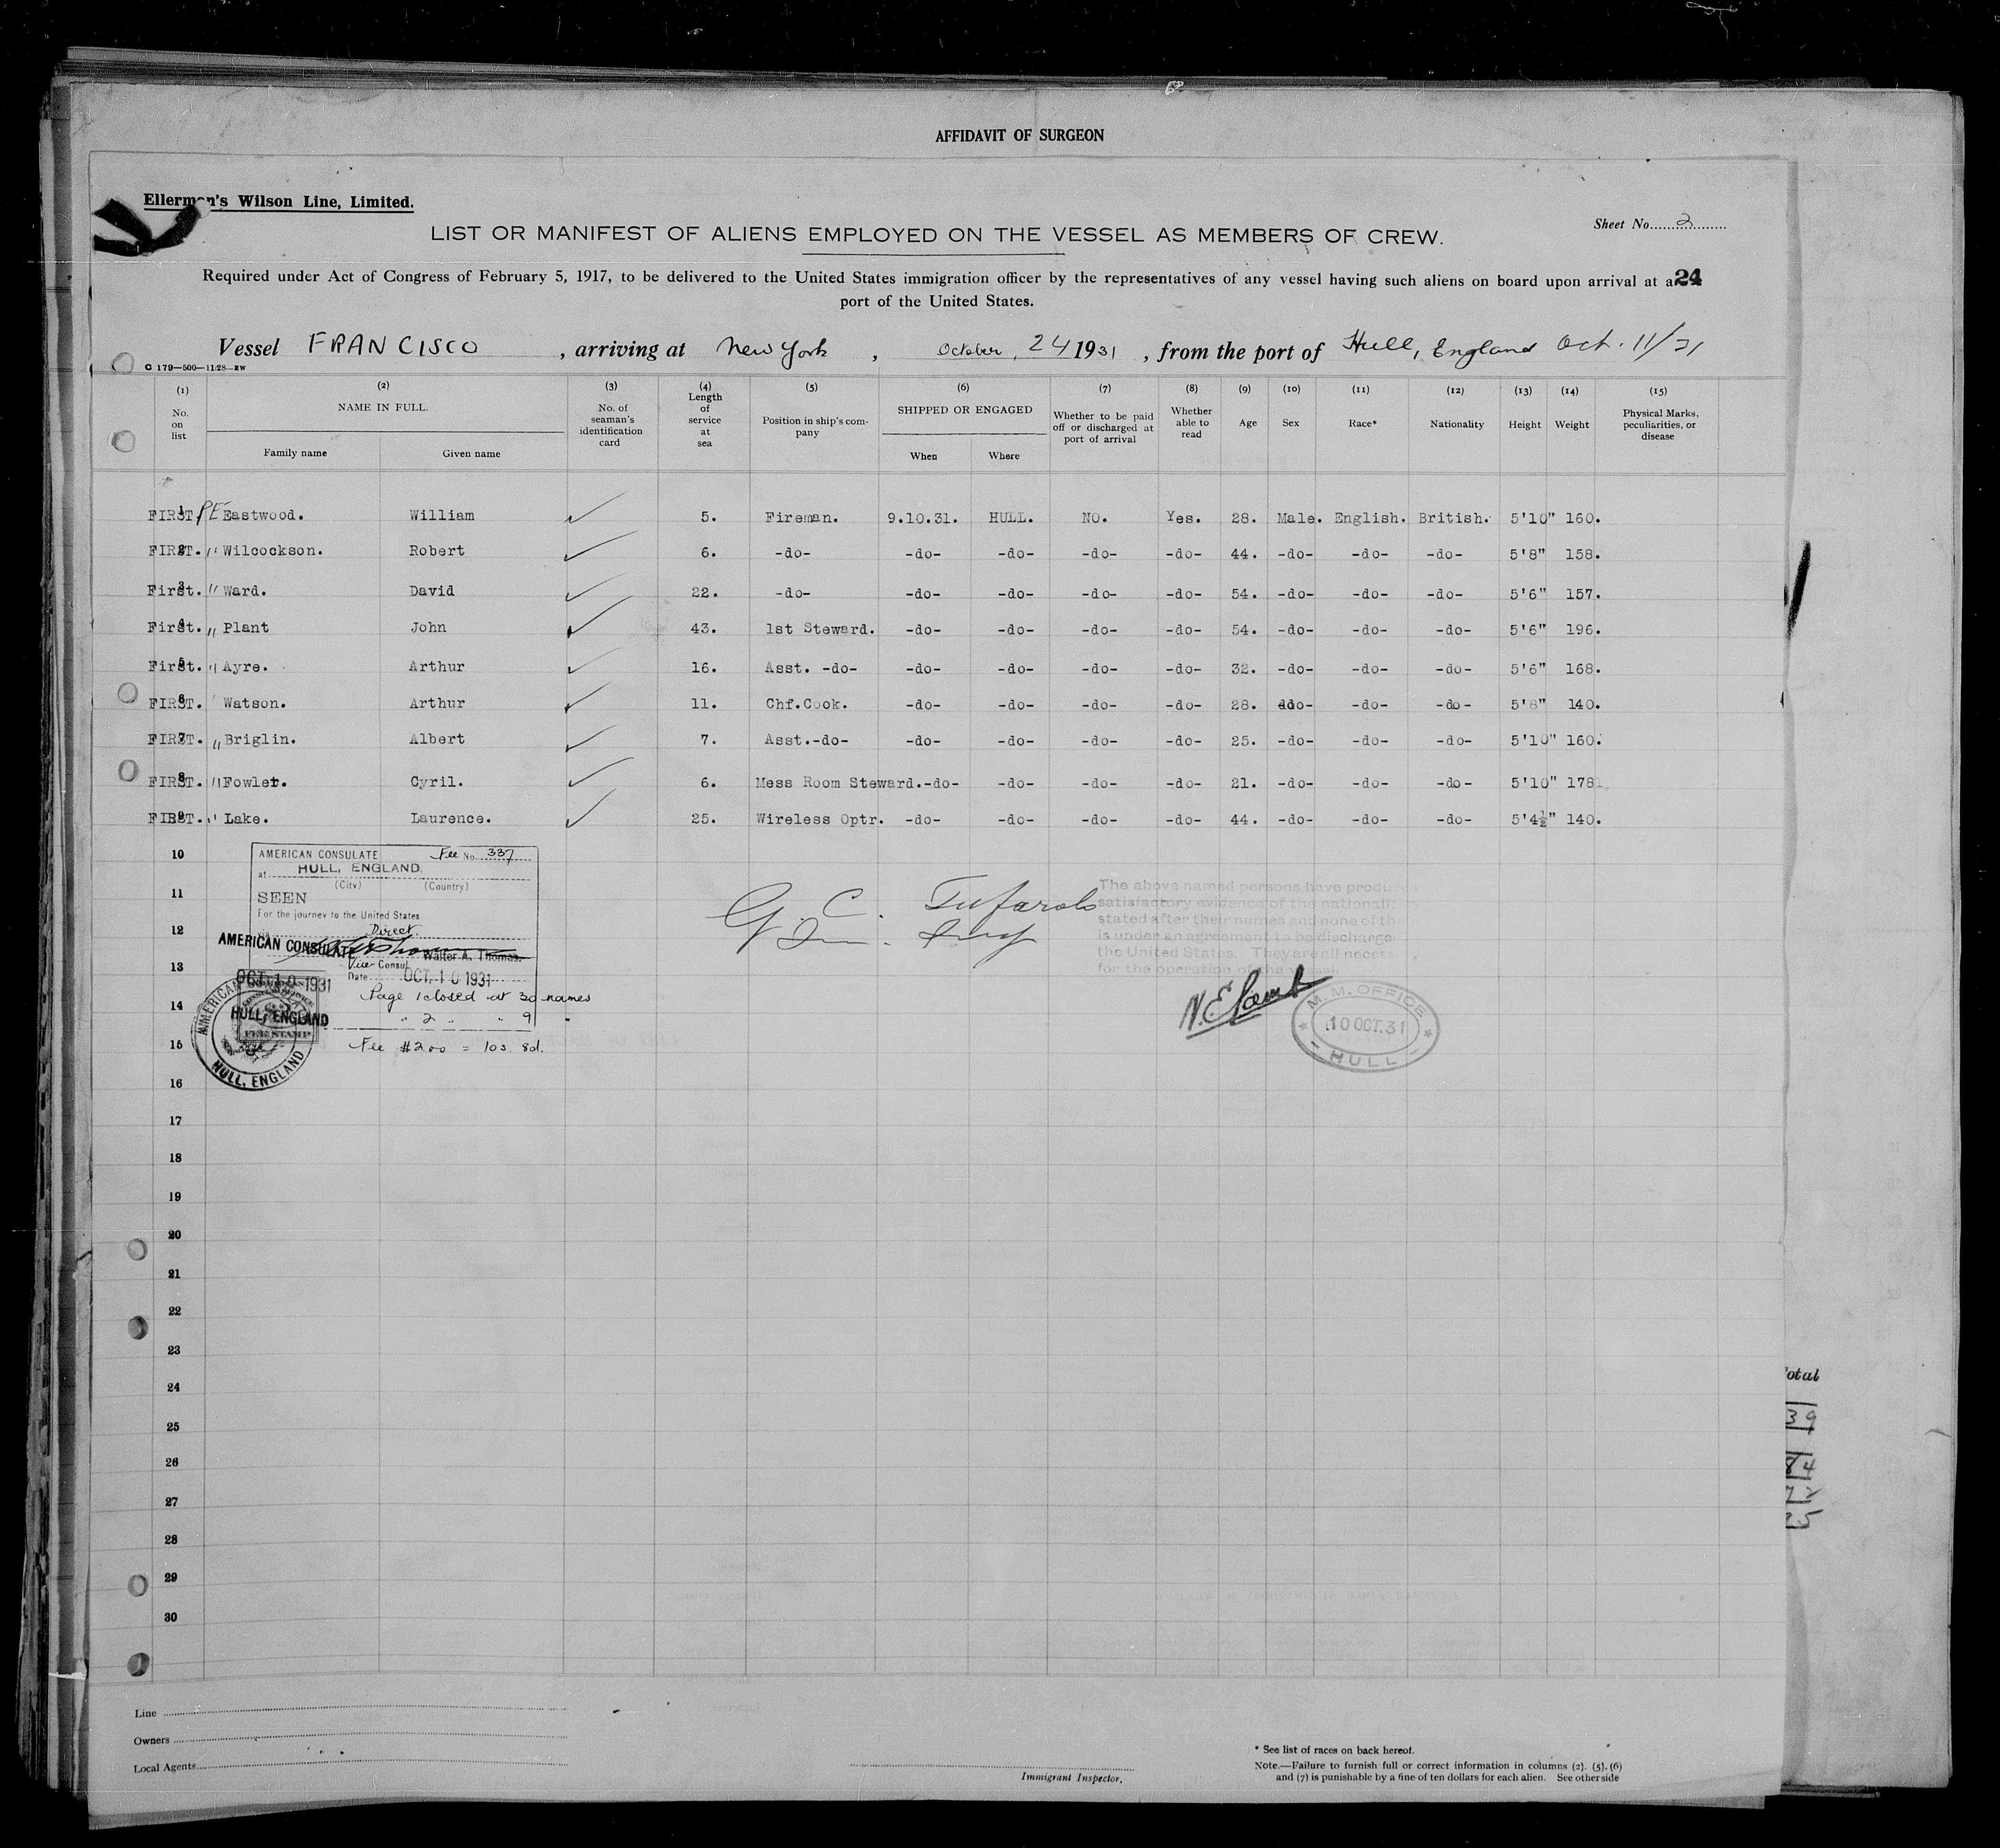 AFFIDAVIT OF SURGEON
Ellerman's Wilson Line, Limited.
Sheet No. 2
LIST OR MANIFEST OF ALIENS EMPLOYED ON THE VESSEL AS MEMBERS OF CREW.
Required under Act of Congress of February 5, 1917, to be delivered to the United States immigration officer by the representatives of any vessel having such aliens on board upon arrival at a 24
port of the United States.
Vessel FRANCISCO, arriving at New York, October, 24 1931, from the port of Hull, England Oct. 11/31
C 179—500—11/28—RW
(1) No. on list (2) NAME IN FULL. Family name Given name (3) No. of seaman's identification card (4) Length of service at sea (5) Position in ship's company (6) SHIPPED OR ENGAGED When Where (7) Whether to be paid off or discharged at port of arrival (8) Whether able to read (9) Age (10) Sex (11) Race* (12) Nationality (13) Height (14) Weight (15) Physical Marks, peculiarities, or disease
1 FIRST. PE Eastwood. William 5. Fireman. 9.10.31. HULL. NO. Yes. 28. Male. English. British. 5'10" 160.
2 FIRST. " Wilcockson. Robert 6. -do- -do- -do- -do- -do- 44. -do- -do- -do- 5'8" 158.
3 First. " Ward. David 22. -do- -do- -do- -do- -do- 54. -do- -do- -do- 5'6" 157.
4 First. " Plant John 43. 1st Steward. -do- -do- -do- -do- 54. -do- -do- -do- 5'6" 196.
5 First. " Ayre. Arthur 16. Asst. -do- -do- -do- -do- -do- 32. -do- -do- -do- 5'6" 168.
6 FIRST. " Watson. Arthur 11. Chf.Cook. -do- -do- -do- -do- 28. ddo- -do- -do- 5'8" 140.
7 FIRST. " Briglin. Albert 7. Asst.-do- -do- -do- -do- -do- 25. -do- -do- -do- 5'10" 160.
8 FIRST. " Fowler. Cyril. 6. Mess Room Steward.-do- -do- -do- -do- 21. -do- -do- -do- 5'10" 178
9 FIRST. " Lake. Laurence. 25. Wireless Optr. -do- -do- -do- -do- 44. -do- -do- -do- 5'4½" 140.
10
11
12
13
14
15
16
17
18
19
20
21
22
23
24
25
26
27
28
29
30
AMERICAN CONSULATE Fee No. 337
at HULL, ENGLAND,
(City) (Country)
SEEN
For the journey to the United States
Direct.
AMERICAN CONSULATE Walter A. Thomas.
Vice Consul
Date OCT. 10 1931
OCT. 10 1931
HULL, ENGLAND
FEE STAMP
AMERICAN
HULL, ENGLAND
Page 1 closed at 30 names
" 2 " " 9 "
Fee $2.00 = 10s. 8d.
G. C.
The above named persons have produ
satisfactory evidence of the nationalit
stated after their names and none of th
is under an agreement to be discharge
the United States. They are all necess
for the operation of the vessel.
M. M. OFFICE
10 OCT. 31
HULL
otal
39
Line
Owners
Local Agents
Immigrant Inspector.
* See list of races on back hereof.
Note.—Failure to furnish full or correct information in columns (2). (5). (6)
and (7) is punishable by a fine of ten dollars for each alien. See other side